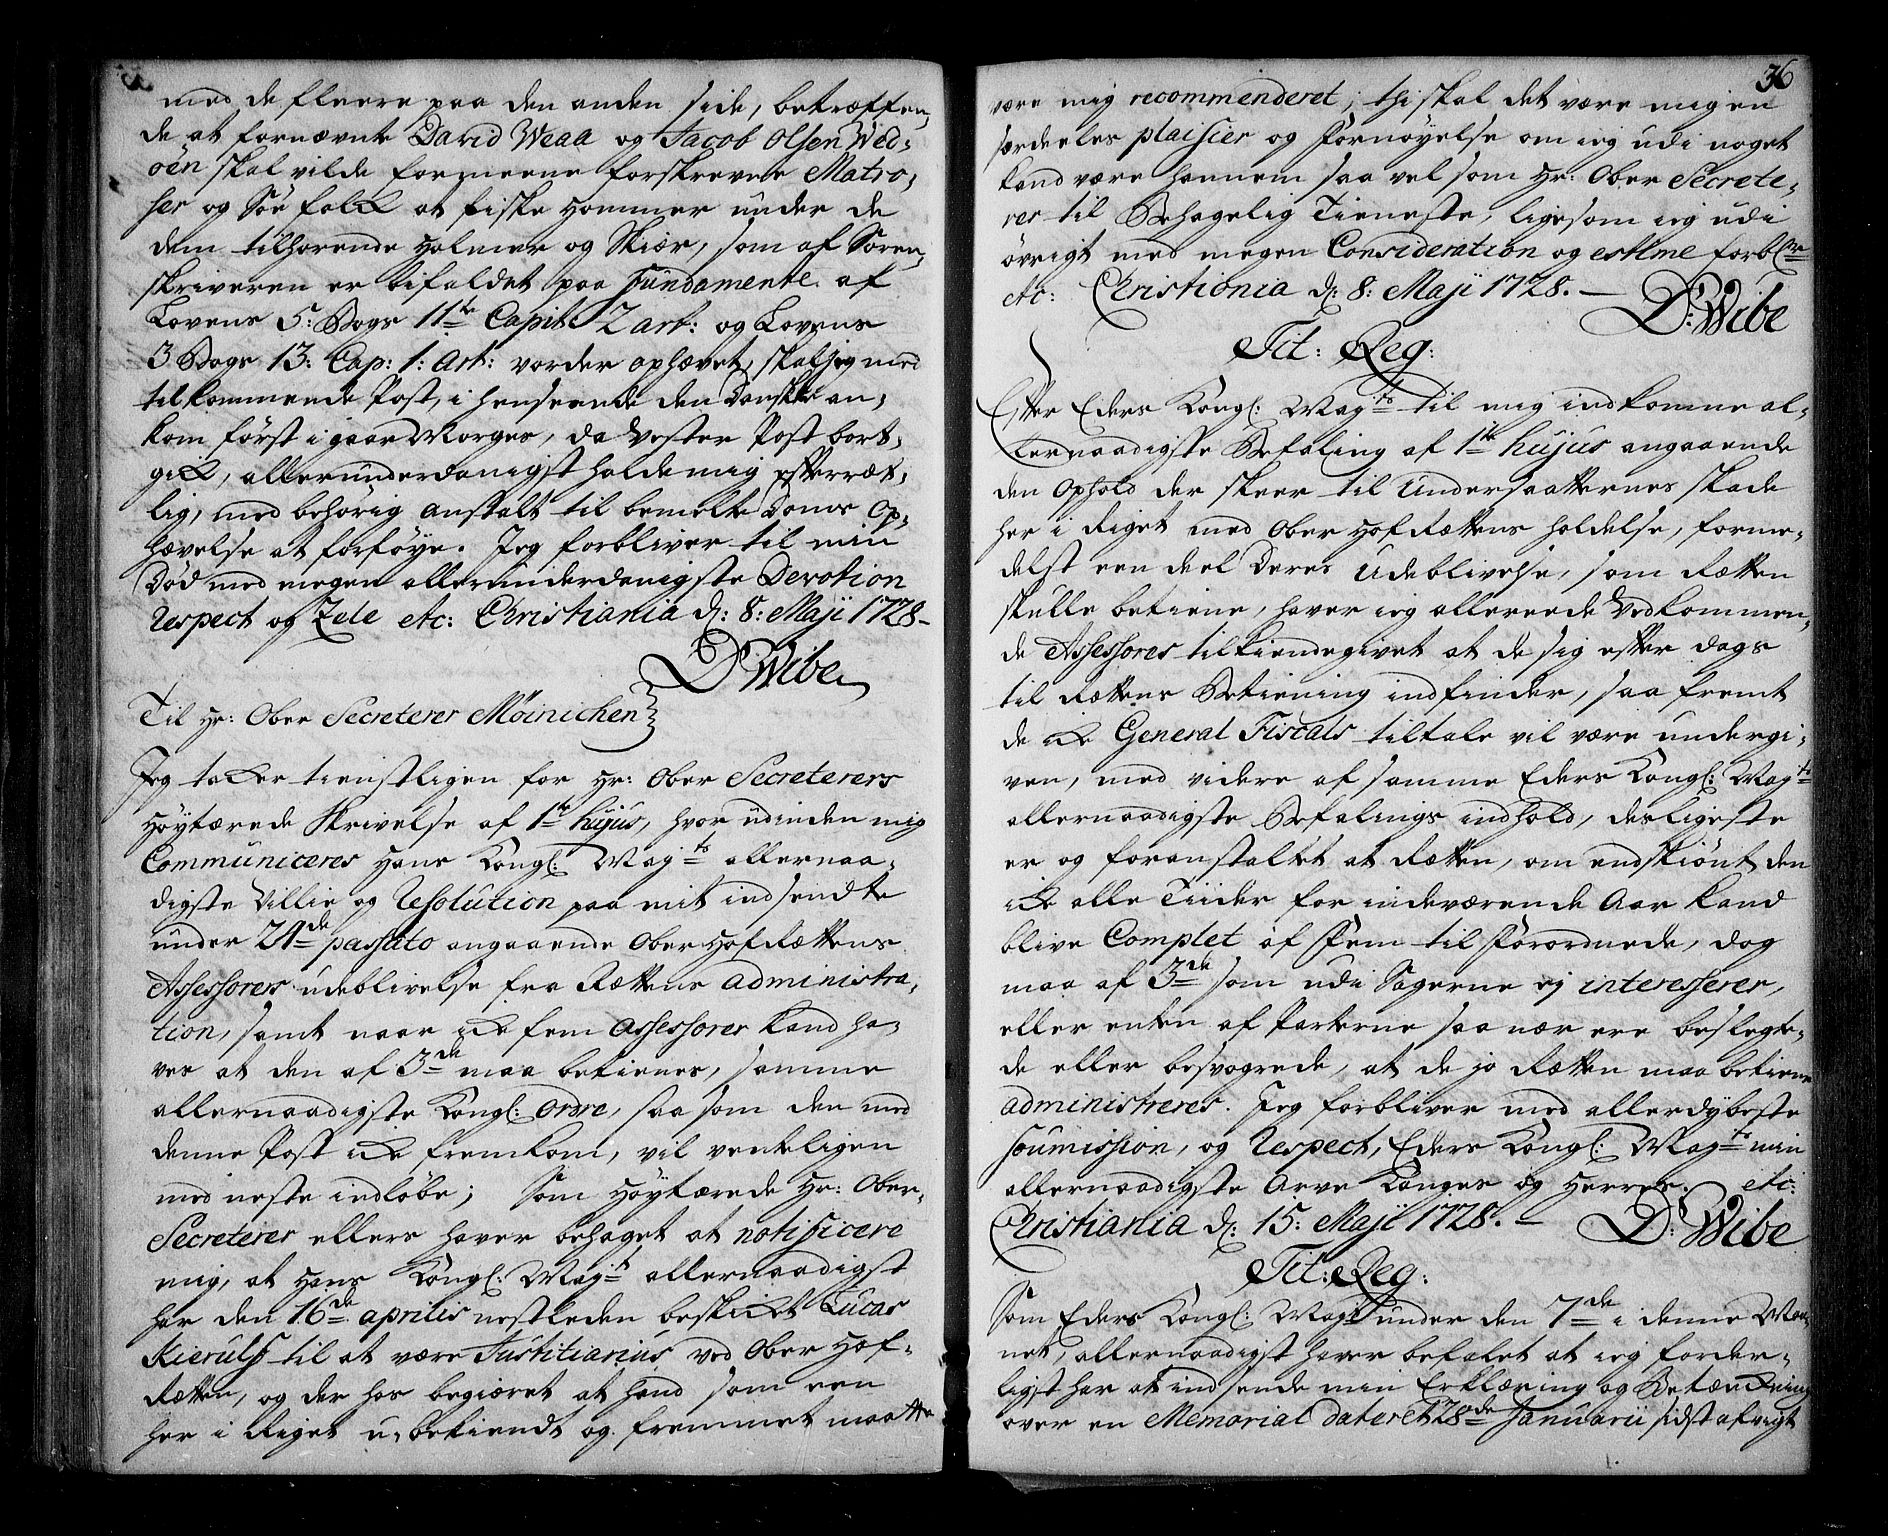 med de fleere paa den anden side, betræffen,
de at fornævnte David Weaa og Jacob Olsen Wed-
öen skal vilde formeene forskrevene Matro,
ser og Söe folck at fiske Hommer under de
dem tilhørende Holmer og Skiær, som af Soren,
skriveren er bifaldet paa fundamente af
Lovens 5: Bogs 11te Capit: 2 art: og Lovens
3 Bogs 13: Cap: 1: Art: vorder ophævet, skal jeg med
tilkommende Post, i henseende den Danske an,
kom først i gaar Morges, da Vester Post bort,
gick, allerunderdanigst holde mig efterræt,
lig, med behörig anstalt til bemelte Doms Op,
hævelse at forföye. Jeg forbliver til min
Död med megen allerunderdanigste Devotion
Respect og Zele etc: Christiania d: 8: Maji 1728
D Wibe
Til Hr: Ober Secreterer Möinichen
Jeg tacker tienstligen for Hr: Ober Secreterers
Höytærede Skrivelse af 1te hujus, hvor udinden mig
Communiceres Hans Kongl: Mayts allernaa,
digste Villie og Resolution paa mit indsendte
under 24de passato angaaende Ober Hof Rettens
Assessorers udeblivelse fra Rettens administra,
tion, samt naar icke fem Assessorer kand ha-
ves at den af 3de maa betienes, samme
allernaadigste Kongl: Ordre, saa som den med
denne Post icke fremkom, vil venteligen
med neste indlöbe; Som Höytærede Hr: Ober-
Secreterer ellers haver behaget at notificere
mig, at Hans Kongl: Mayt allernaadigst
har den 16de aprilis nestleden beskicket Lucas
Kierulf til at være Justitiarius ved Ober Hof-
Retten, og der hos begiæret at hand som een
her i Riget u-bekiendt og fremmet maatte
36
være mig recommenderet; thi skal det være mig en
særdeeles plaisier og Fornöyelse om jeg udi noget
kand være hannem saa vel som Hr: Ober Secrete-
rer til Behagelig Tieneste, ligesom jeg udi
övrigt med megen Consideration og estime forblr
etc: Christiania d: 8: Maji 1728.
D: Wibe
Tit: Reg:
Efter Eders Kongl: Mayts til mig indkomne al-
lernaadigste Befaling af 1te hujus angaaende
den Ophold der skeer til Undersaatternes skade
her i Riget med Ober Hof Rettens holdelse, forme-
delst een deel Deres Udeblivelse, som Retten
skulle betiene, haver jeg allereede Vedkommen,
de Assessores tilkiendegivet at de sig efter dags
til Rettens Betiening indfinder, saa fremt
de icke General Fiscals tiltale vil være undergi-
ven, med videre af samme Eders Kongl: Mayts
allernaadigste Befalings indhold, desligeste
er og foranstaltet at Retten, om endskiönt den
icke alle Tiider for indeværende Aar kand
blive Complet af Fem til Forordnede, dog
maa af 3de som udi Sagerne ej interesserer,
eller enten af Parterne saa nær ere beslegte-
de eller besvogrede, at de jo Retten maa betiene
administreres. Jeg forbliver med allerdybeste
soumission, og Respect, Eders Kongl: Mayts min
allernaadigste Arve Konges og Herres. etc:
Christiania d: 15: Maji 1728.
D: Wibe
Tit: Reg:
Som Eders Kongl: Mayt under den 7de i denne Maa-
net, allernaadigst haver befalet at jeg forder-
ligst har at indsende min Erklæring og Betænkning
over en Memorial dateret 28de Januarii sidst afvigt